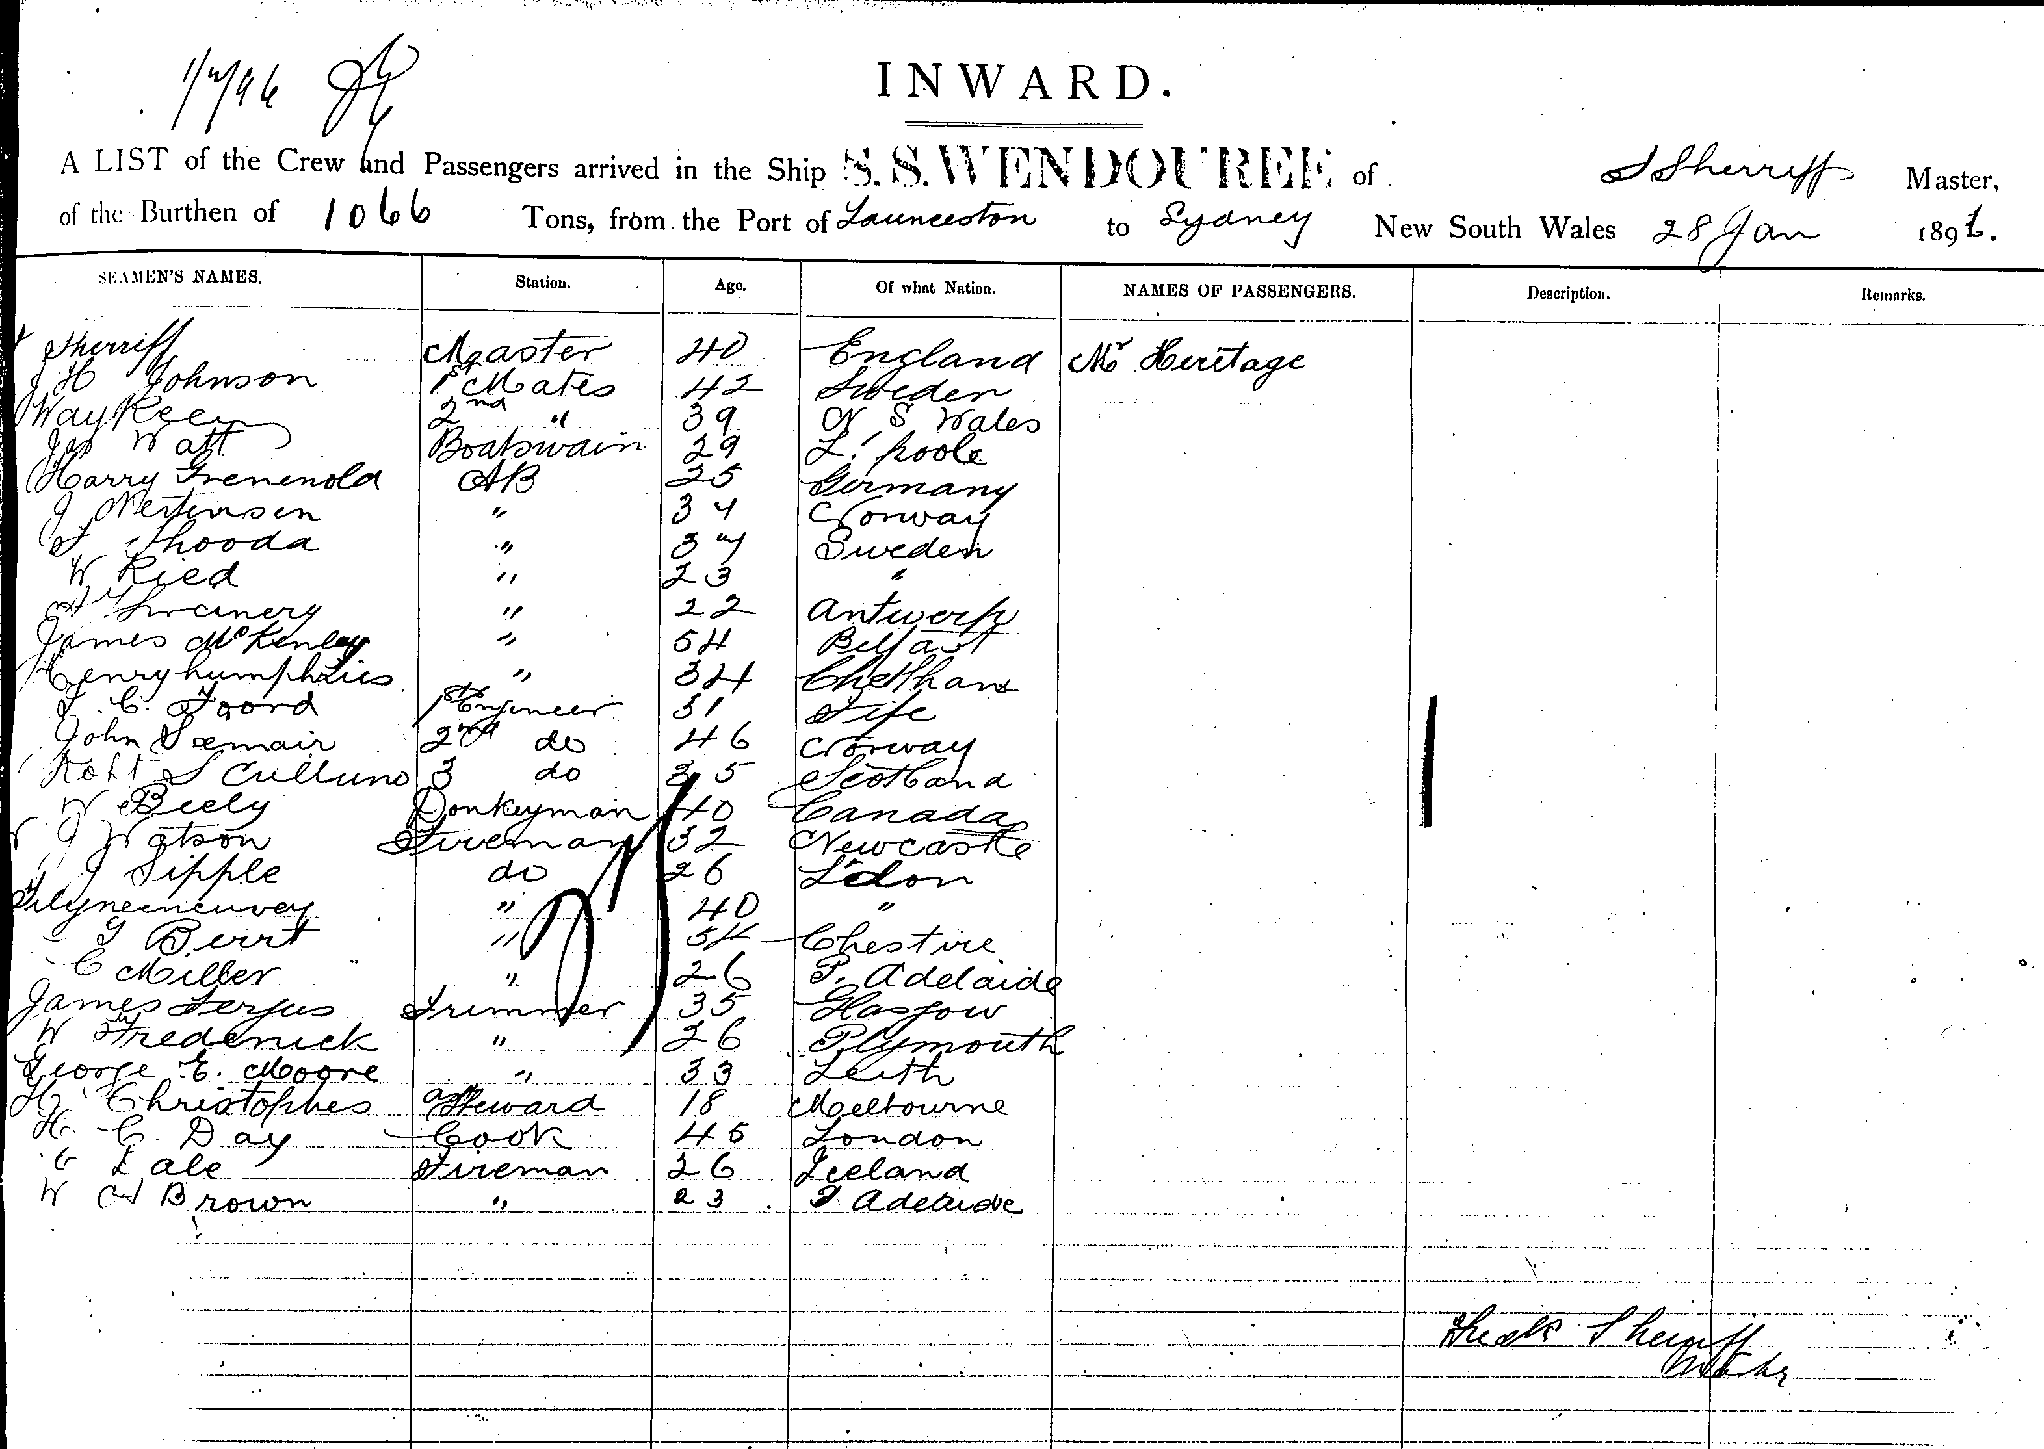 1/2/96
INWARD.
A LIST of the Crew and Passengers arrived in the Ship S.S. WENDOUREE of J Sherriff Master,
of the Burthen of 1066 Tons, from the Port of Launceston to Sydney New South Wales 28 Jan 1896.
SEAMEN'S NAMES. Station. Age. Of what Nation. NAMES OF PASSENGERS. Description. Remarks.
Sherriff Master 40 England Mr Heritage
J H Johnson 1st Mates 42 Sweden
2nd " 39 N S Wales
Jas Watt Boatswain 29 L'poole
Harry AB 25 Germany
J " 34 Norway
" 37 Sweden
W Ried " 23 "
" 22 Antwerp
James McKenley " 54 Belfast
Henry humphries " 34 Chetham
Foord 1st Engineer 31 Fife
John 2nd do 46 Norway
Robt S Cullum 3 do 35 Scotland
W Beely Donkeyman 40 Canada
J Watson Fireman 32 Newcastle
J Sipple do 26 L'don
" 40 "
Berrt " 54 Chestire
C Miller " 26 P. Adelaide
James Fergus Trimmer 35 Glasgow
W Frederick " 26 Plymouth
George E. Moore " 33 Leith
H Christophes as Steward 18 Melbourne
H. C. Day Cook 45 London
Lale Fireman 26 Iceland
W A Brown " 23 P Adelaide
Sherriff